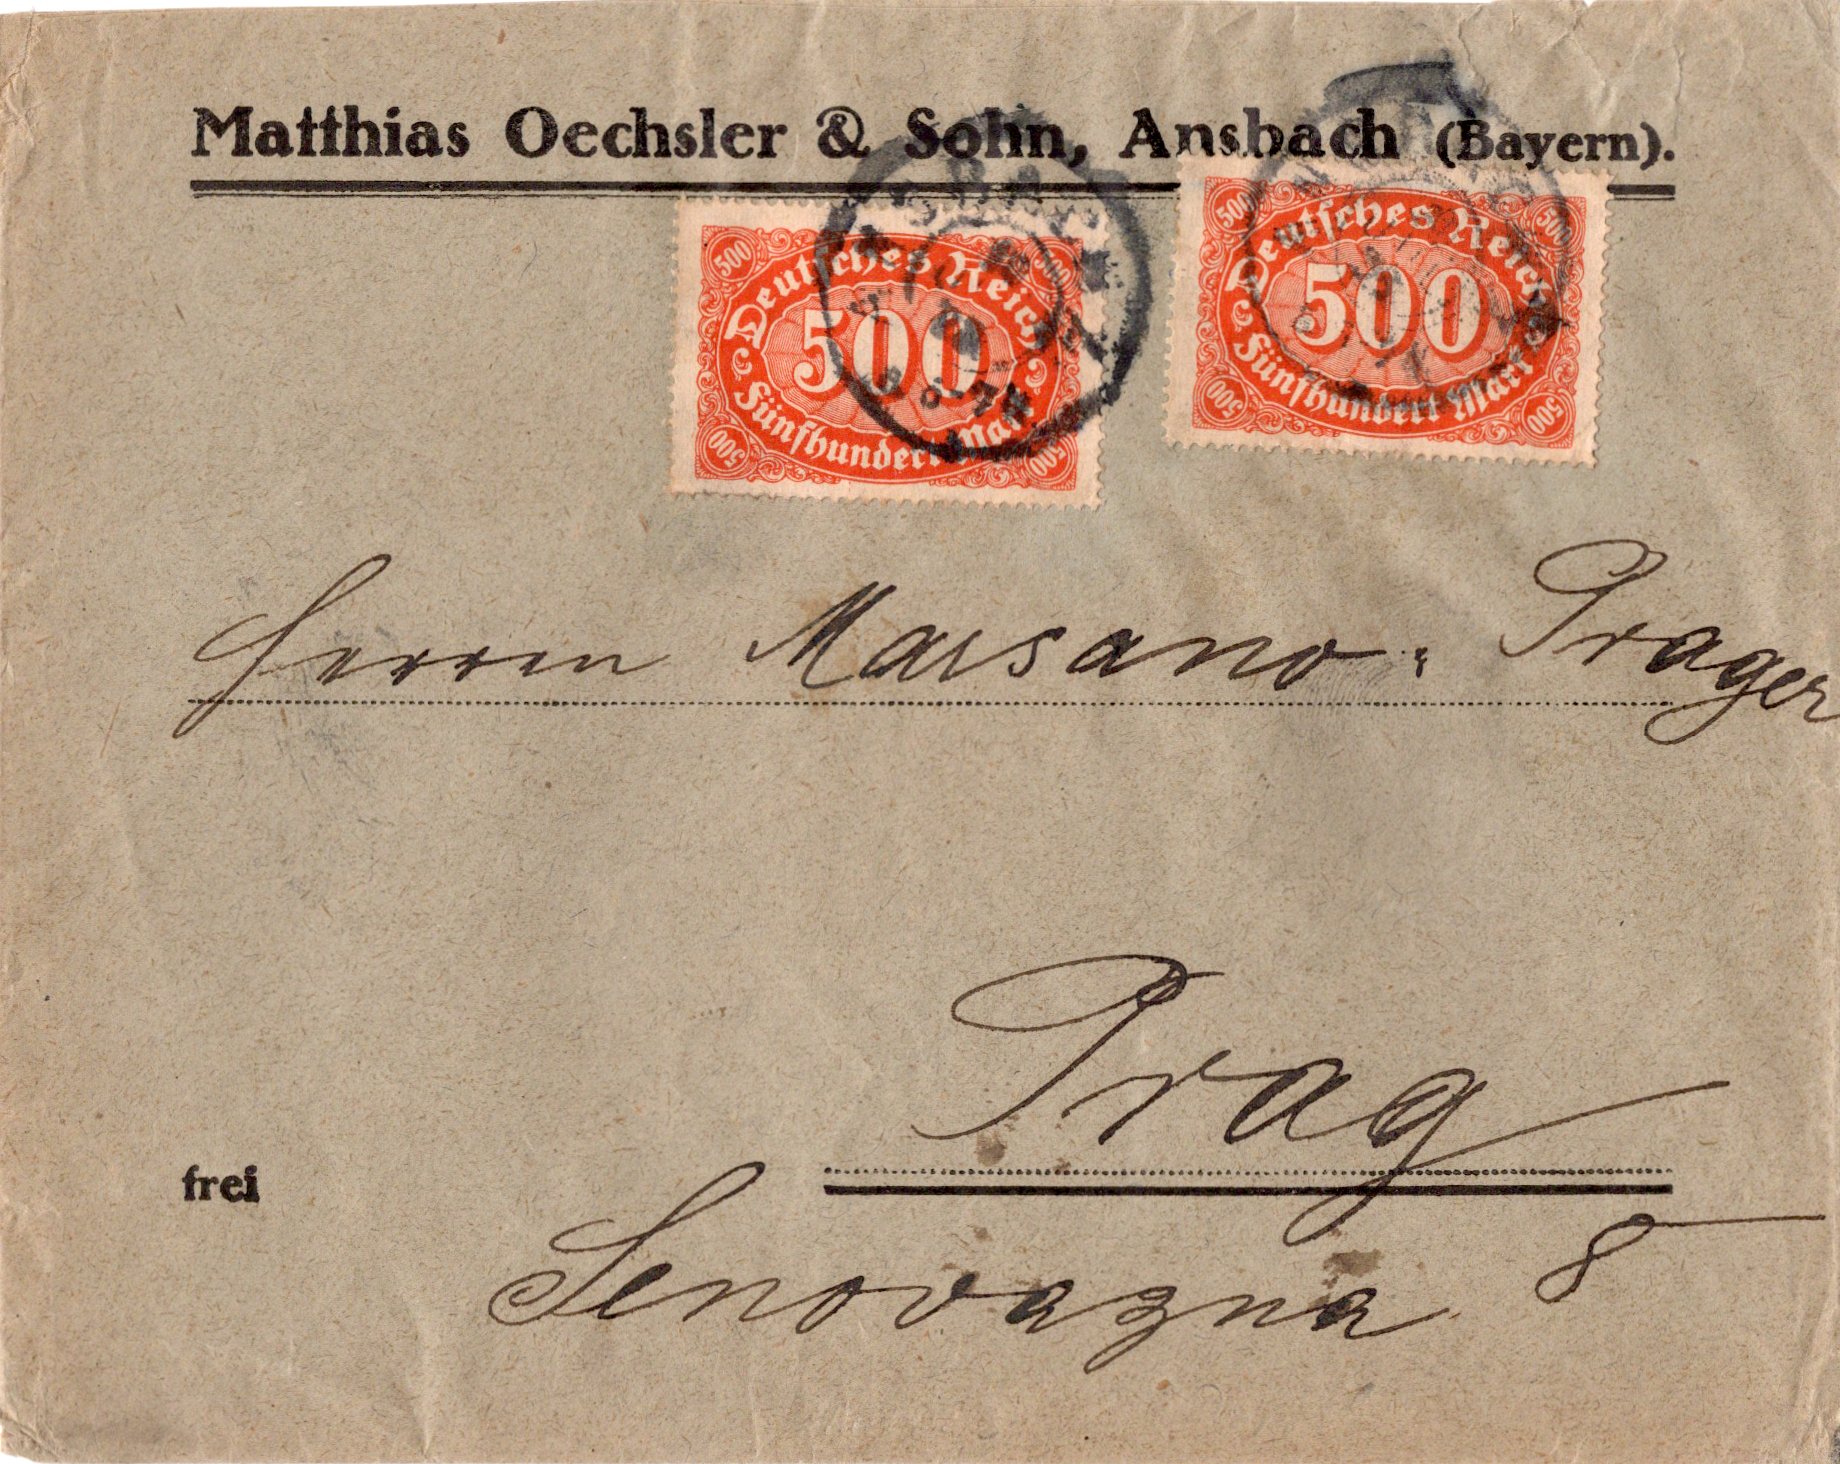 Matthias Oechsler & Sohn, Ansbach (Bayern).
500 500
Deutsches Reich
500
Fünfhundert Mark
500 500
500 500
Deutsches Reich
500
Fünfhundert Mark
500 500
Herren Marsano : Prager
Prag
frei
Senovazna 8